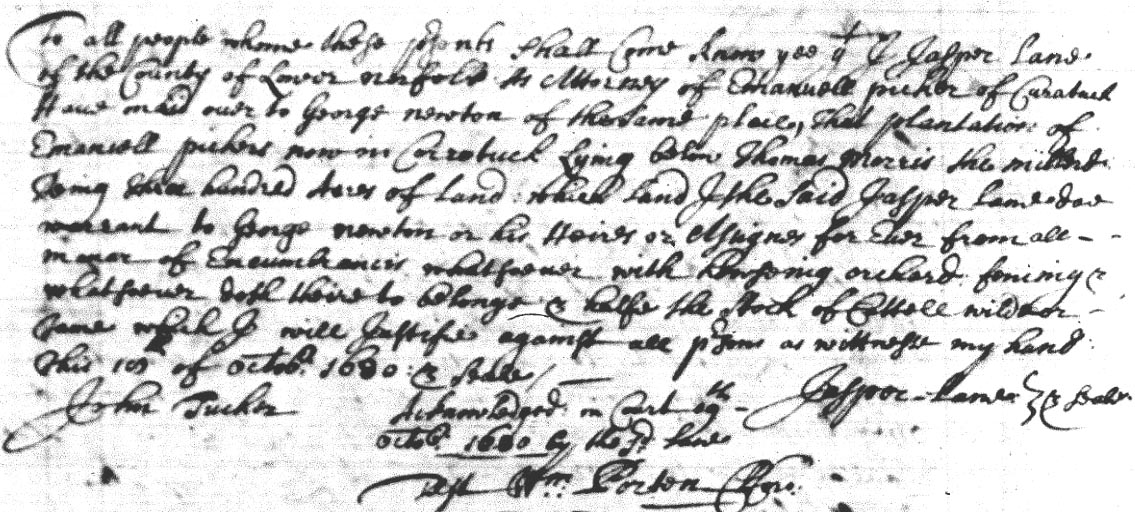 To all people whome these psents shall Come Know yee yt I Jasper Lane
of the County of Lower norfolk As Attorney of Emanuell picker of Curatuck
Have maid over to George newton of the same place, That plantation of
Emanuell pickers now in Corrotuck Lying below Thomas Morris the
Being three hundred Acres of Land: which Land I the Said Jasper Lane doe
warrant to George newton or his Heires or Assignes for Ever from all - -
maner of Encumbrances whatsoever with howseing orchard fencing &
whatsoever doth theire to belonge & halfe the stock of Cattell wild or -
tame which I will Justifie against all psons as wittnesse my hand
This 10 of octobr 1680: & seale
John Tucker Jasper Lane & Seale
Acknowledged in Court th -
octobr 1680 by the sd Lane
Test Wm. Porten